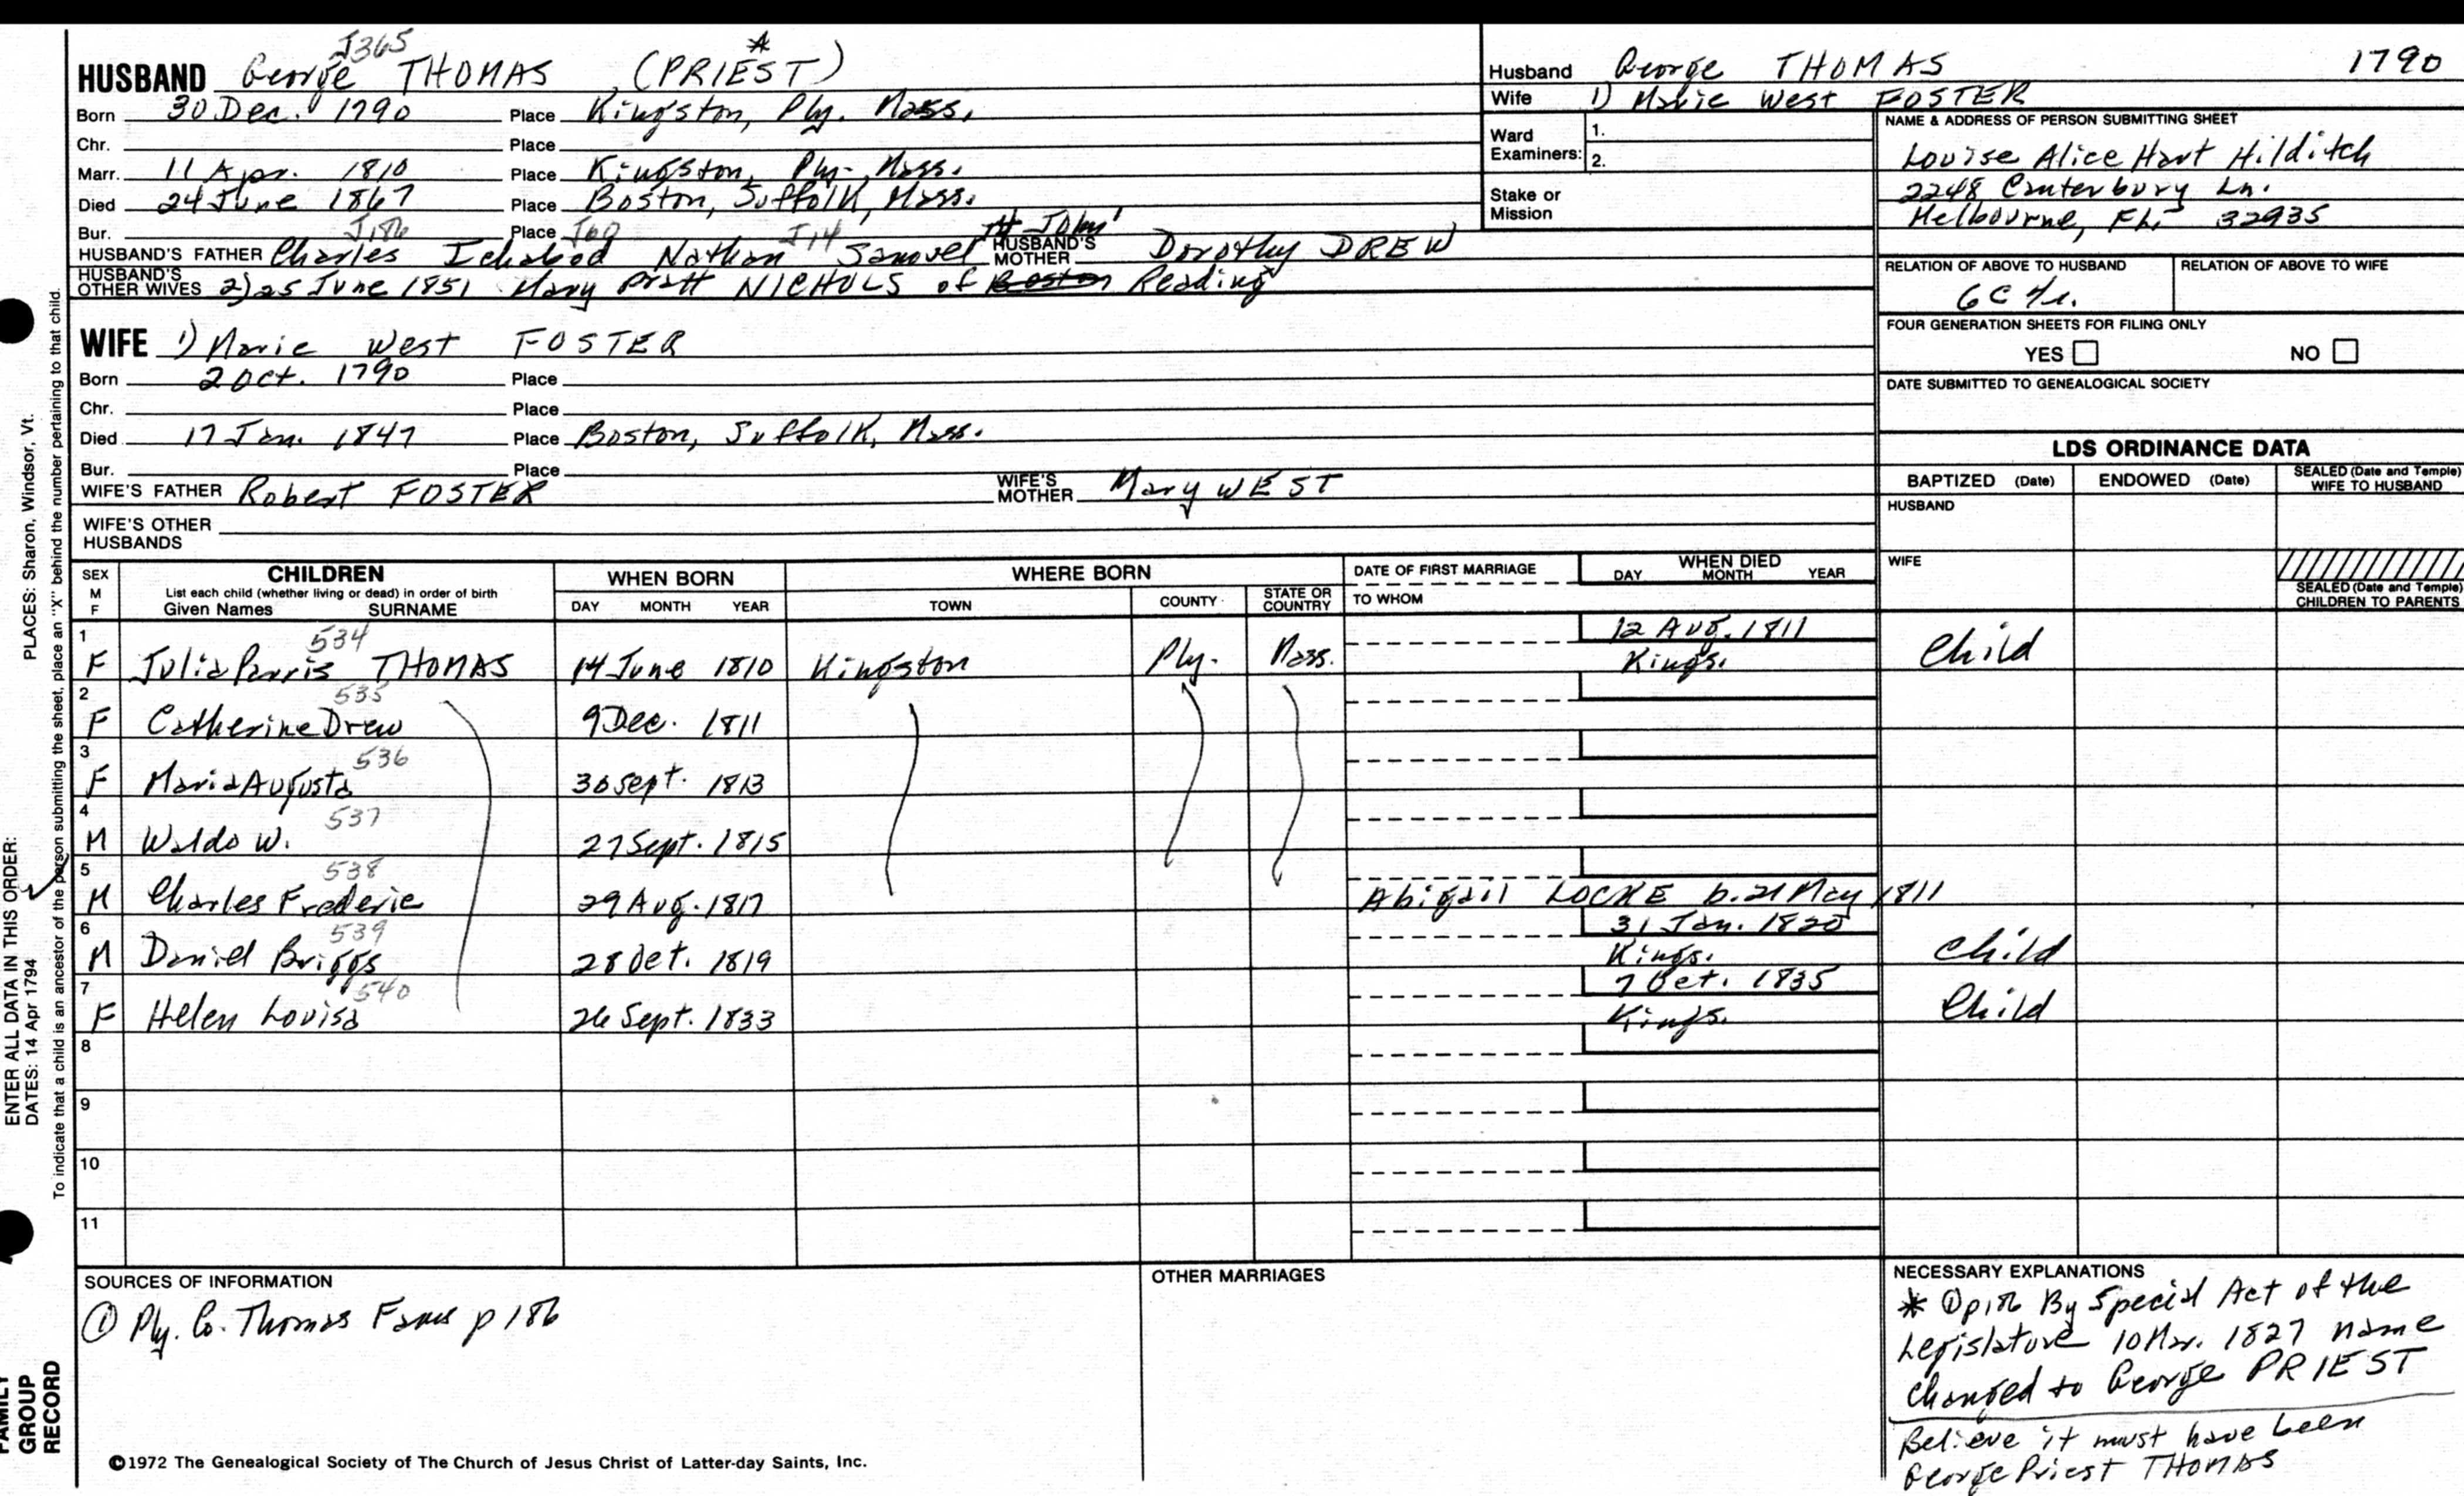 J365
HUSBAND George THOMAS (PRIEST) *
Born 30 Dec. 1790 Place Kingston, Ply. Mass.
Chr. Place
Marr. 11 Apr. 1810 Place Kingston, Ply. Mass.
Died 24 June 1867 Place Boston, Suffolk, Mass.
Bur. Place
J186 J60 J14 John'
HUSBAND'S FATHER Charles Ichabod Nathan Samuel HUSBAND'S MOTHER Dorothy DREW
HUSBAND'S OTHER WIVES 2) 25 June 1851 Mary Pratt NICHOLS of Boston Reading
WIFE 1) Marie West FOSTER
Born 2 Oct. 1790 Place
Chr. Place
Died 17 Jan. 1847 Place Boston, Suffolk, Mass.
Bur. Place
WIFE'S FATHER Robert FOSTER WIFE'S MOTHER Mary WEST
WIFE'S OTHER HUSBANDS
Husband George THOMAS 1790
Wife 1) Marie West FOSTER
Ward Examiners: 1.
2.
Stake or Mission
NAME & ADDRESS OF PERSON SUBMITTING SHEET
Louise Alice Hart Hilditch
2248 Canterbury Ln.
Melbourne, FL. 32935
RELATION OF ABOVE TO HUSBAND RELATION OF ABOVE TO WIFE
6C 4r.
FOUR GENERATION SHEETS FOR FILING ONLY
YES NO
DATE SUBMITTED TO GENEALOGICAL SOCIETY
LDS ORDINANCE DATA
BAPTIZED (Date) ENDOWED (Date) SEALED (Date and Temple) WIFE TO HUSBAND
HUSBAND
WIFE
SEALED (Date and Temple) CHILDREN TO PARENTS
SEX M F
CHILDREN
List each child (whether living or dead) in order of birth
Given Names SURNAME
WHEN BORN
DAY MONTH YEAR
WHERE BORN
TOWN COUNTY STATE OR COUNTRY
DATE OF FIRST MARRIAGE
TO WHOM
WHEN DIED
DAY MONTH YEAR
1 534 12 Aug. 1811
F Julia Parris THOMAS 14 June 1810 Kingston Ply. Mass. Kings. Child
2 535
F Catherine Drew 9 Dec. 1811
3 536
F Maria Augusta 30 Sept. 1813
4 537
M Waldo W. 27 Sept. 1815
5 538
M Charles Frederic 29 Aug. 1817 Abigail LOCKE b. 21 May 1811
6 539 31 Jan. 1820
M Daniel Briggs 28 Oct. 1819 Kings. Child
7 540 7 Oct. 1835
F Helen Louisa 26 Sept. 1833 Kings. Child
8
9
10
11
SOURCES OF INFORMATION
① Ply. Co. Thomas Fams p 186
OTHER MARRIAGES
NECESSARY EXPLANATIONS
* ① p186 By Special Act of the
Legislature 10 Mar. 1827 name
changed to George PRIEST
Believe it must have been
George Priest THOMAS
©1972 The Genealogical Society of The Church of Jesus Christ of Latter-day Saints, Inc.
ENTER ALL DATA IN THIS ORDER:
DATES: 14 Apr 1794 PLACES: Sharon, Windsor, Vt.
To indicate that a child is an ancestor of the person submitting the sheet, place an "X" behind the number pertaining to that child.
FAMILY
GROUP
RECORD